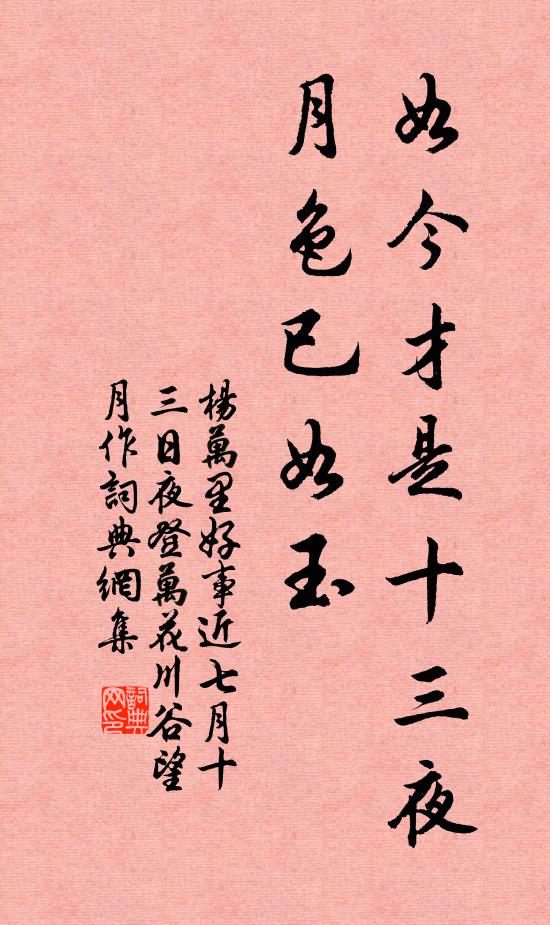 如今才是十三夜
月色已如玉
楊萬里好事近七月十
三日夜登萬花川谷望
月作詞典網集
詞典網印